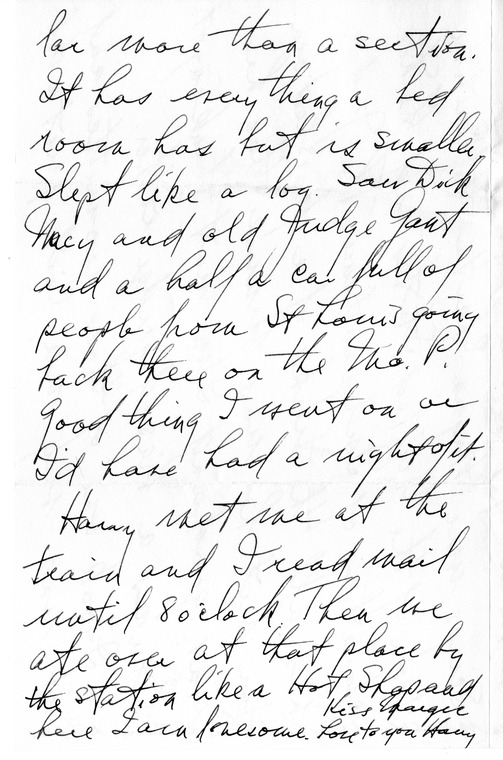 lar more than a section.
It has everything a bed
room has but is smaller.
Slept like a log. Saw Dick
Nacy and old Judge Gant
and a half a car full of
people from St Louis going
back there on the Mo. P.
Good thing I went on or
I'd have had a night of it.
Harry met me at the
train and I read mail
until 8 o'clock. Then we
ate over at that place by
the station like a Hot Shop and
here I am lonesome. Kiss Margie
Love to you Harry